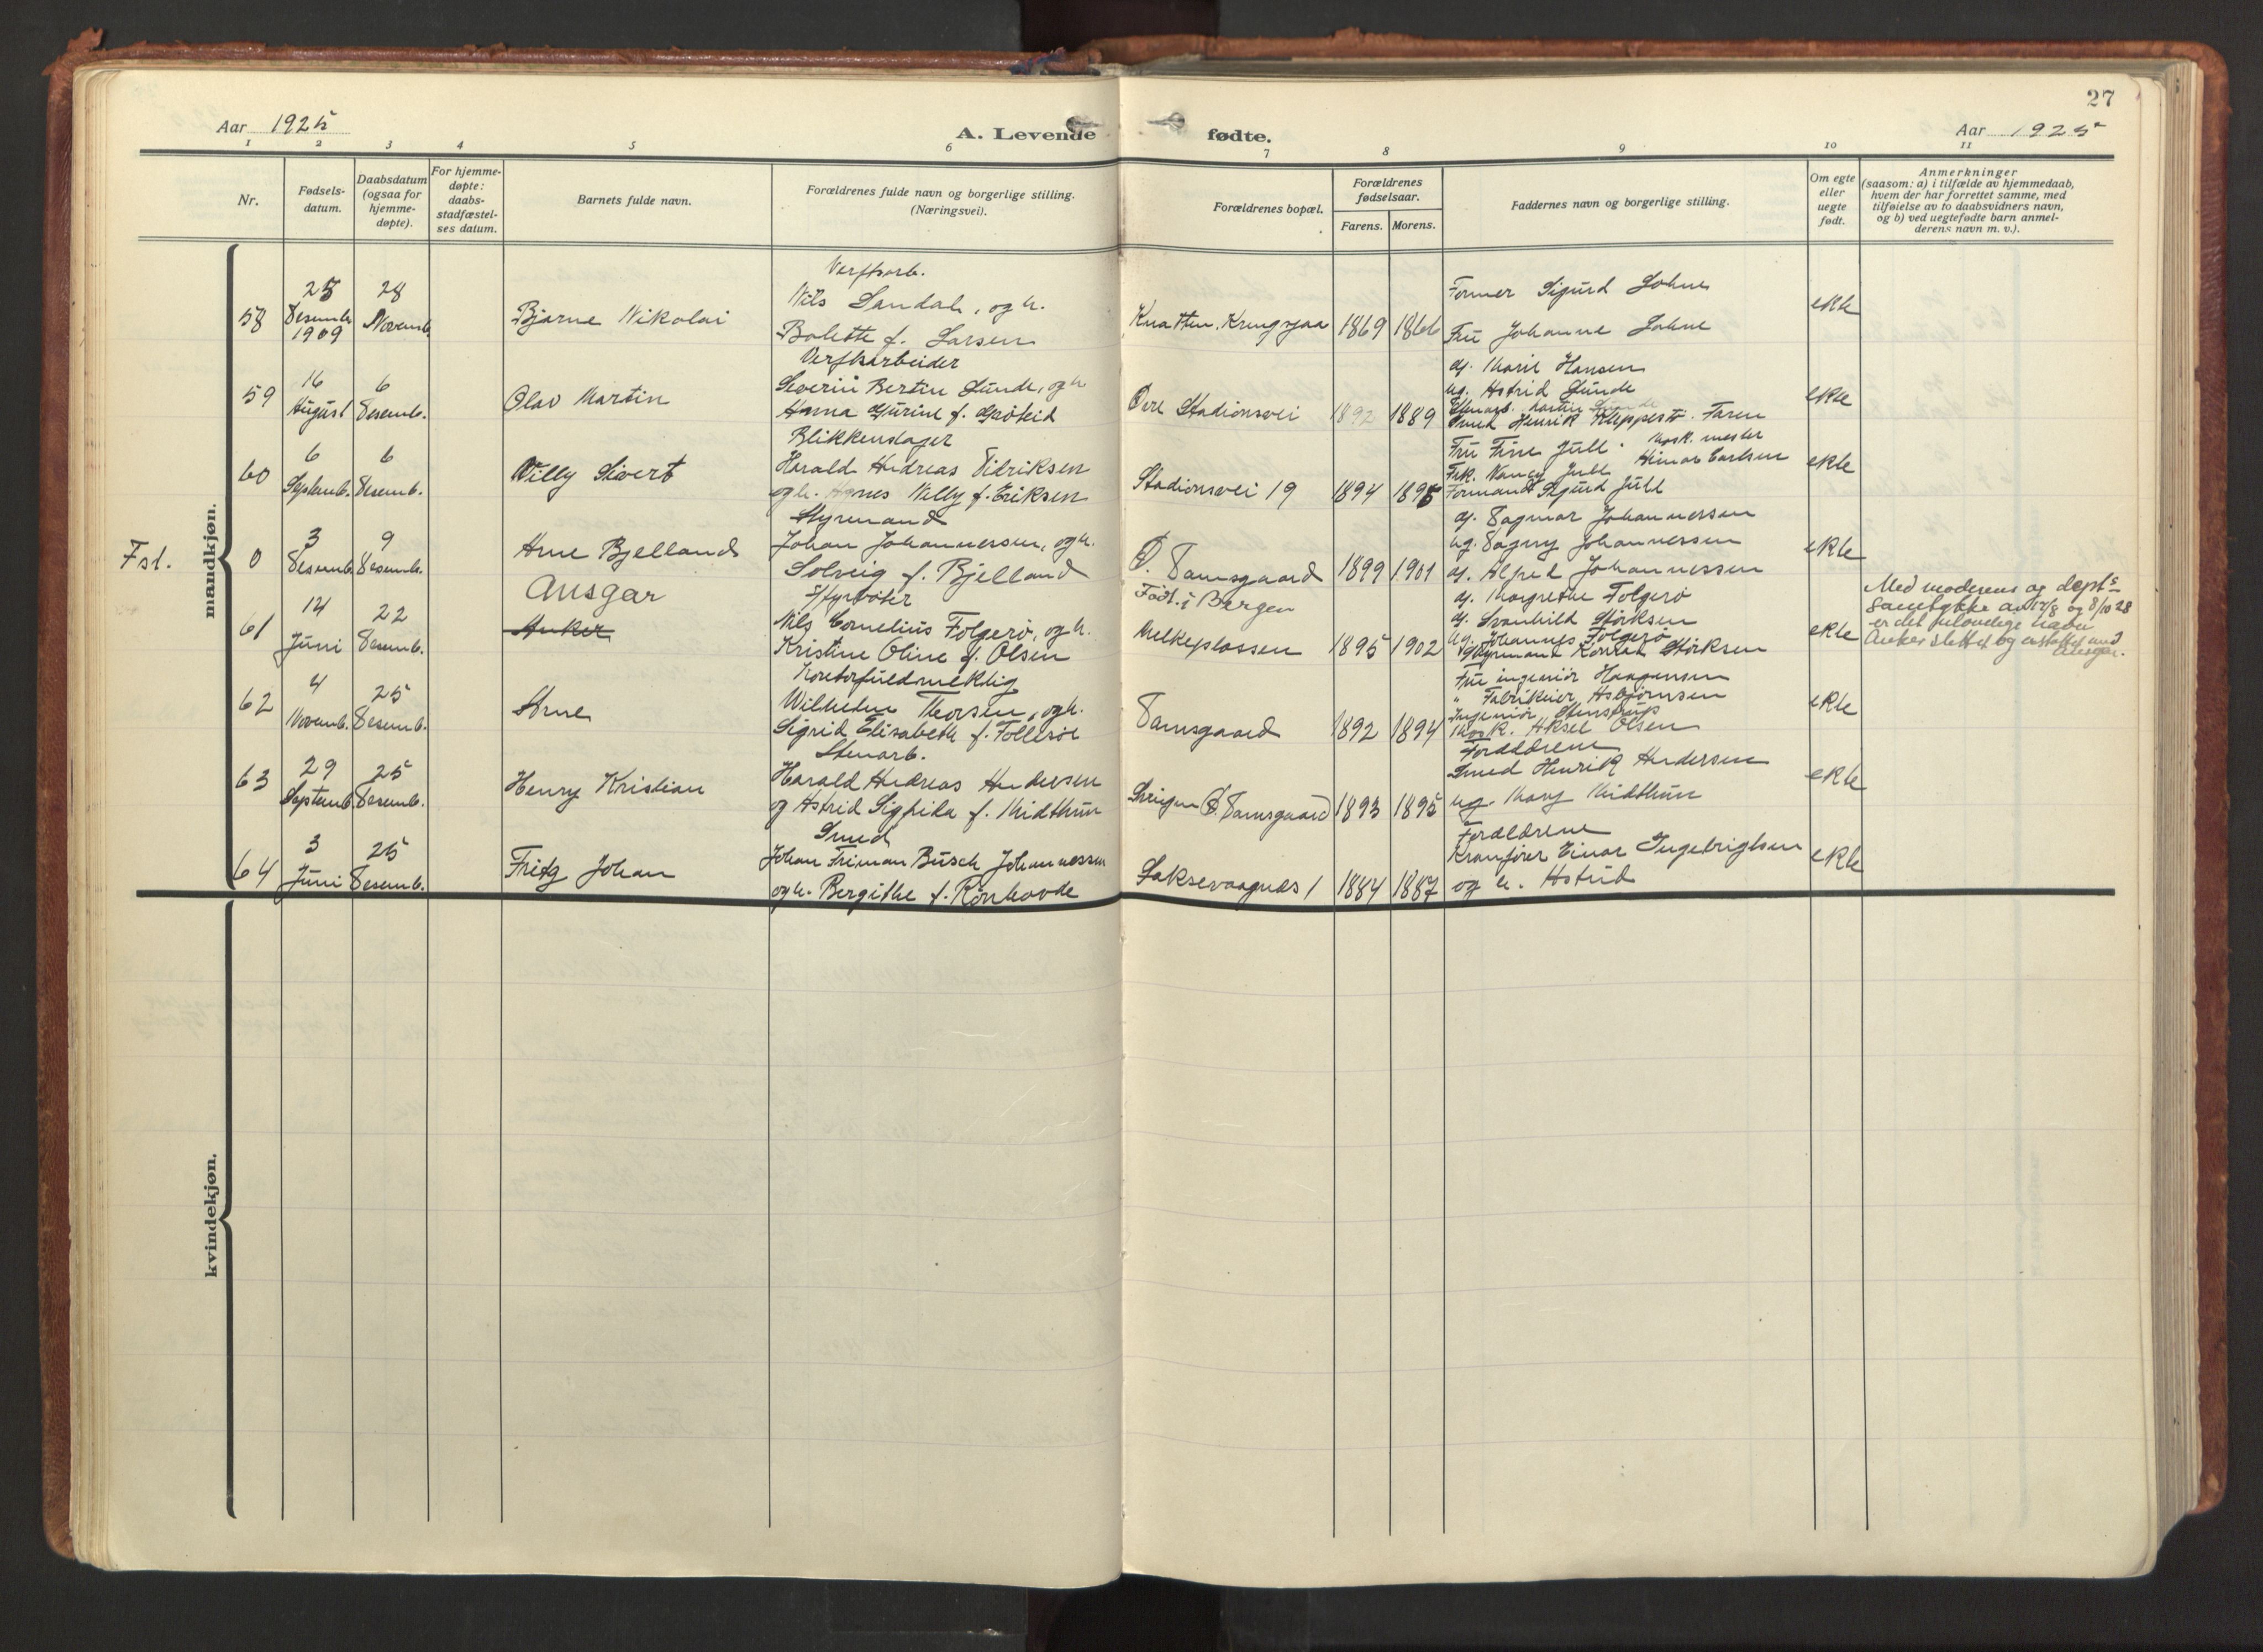 27
Aar 1925
A. Levende fødte.
Aar 1925
1 2 3 4 5 6 7 8 9 10 11
Nr.
Fødsels-
datum.
Daabsdatum
(ogsaa for
hjemme-
døpte).
For hjemme-
døpte:
daabs-
stadfæstel-
ses datum.
Barnets fulde navn.
Forældrenes fulde navn og borgerlige stilling.
(Næringsvei).
Forældrenes bopæl.
Forældrenes
fødselsaar.
Farens. Morens.
Faddernes navn og borgerlige stilling.
Om egte
eller
uegte
født.
Anmerkninger
(saasom: a) i tilfælde av hjemmedaab,
hvem der har forrettet samme, med
tilføielse av to daabsvidners navn,
og b) ved uegtefødte barn anmel-
derens navn m. v.).
mandkjøn.
58
25
Desemb.
1909
28
Novemb.
Bjarne Nikolai
Verftsarb.
Nils Sandal, og h.
Bolette f. Larsen
Knatten, Kringsjaa
1869 1866
Former Sigurd
Fru Johanne
ekte
59
16
August
6
Desemb.
Olav Martin
Verftsarbeider
Severin Bertin Sunde, og h
Anna Gurine f.
Øvre Stadionsvei
1892 1889
Marie Hansen
Astrid Sunde
Martin Sunde
Smed Henrik Kleppestø. Faren
ekte
60
6
Septemb.
6
Desemb.
Willy Sivert
Blikkenslager
Harald Andreas Didriksen
og h. Agnes Nelly f. Eriksen
Stadionsvei 19
1894 1895
Fru Fine Jull.
Frk. Nancy Jull
Formand Sigurd Jull
ekte
Fst.
0
3
Desemb.
9
Desemb.
Arne Bjelland
Styrmand
Johan Johannessen, og h.
Solveig f. Bjelland
Ø. Damsgaard
Født i Bergen
1899 1901
gf. Dagmar Johannessen
ug. Dagny Johannessen
gf. Alfred Johannessen
ekte
61
14
Juni
22
Desemb.
Ansgar
Anker
Fyrbøter
Nils Cornelius Folgerø, og h.
Kristine Oline f. Olsen
Melkeplassen
1895 1902
gf. Margrethe Folgerø
gf. Svanhild Størksen
ug. Johannes Folgerø
Styrmand Konrad Størksen
ekte
Med moderens og dept.s
samtykke av 17/8 og 8/10 28
er det fulovelige navn
Anker slettet og erstattet med
Ansgar.
62
4
Novemb.
25
Desemb.
Arne
Kontorfuldmektig
Wilhelm Thorsen, og h.
Sigrid Elisabeth f. Follesøe
Damsgaard
1892 1894
Fru ingeniør Haagensen
" Fabrikeier Asbjørnsen
Ingeniør Stenstrup
Mask. Aksel Olsen
ekte
63
29
Septemb.
25
Desemb.
Henry Kristian
Stenarb.
Harald Andreas Andersen
og Astrid Sigfrida f. Midthun
Ø. Damsgaard
1893 1895
Forældrene
Smed Henrik Andersen
ug. Mary Midthun
ekte
64
3
Juni
25
Desemb.
Fritz Johan
Smed
Johan Friman Busch Johannessen
og h. Bergithe f. Rønhovde
Laksevaagnes 1
1884 1887
Forældrene
Kranfører Einar Ingebrigtsen
og h. Astrid
ekte
kvindekjøn.